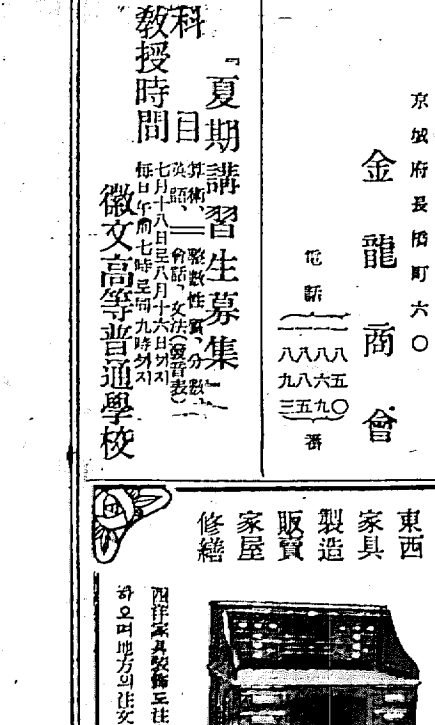 京城府長橋町六〇
金龍商會
電話
八五〇
八六九
一八八五
一八九三
番
『夏期講習生募集』
科目
算術、整數性質、分數、
英語、會話、文法(發音表)
敎授時間
七月十八日로八月十六日외지
每日午前七時로同九時외지
徽文高等普通學校
東西
家具
製造
販賣
家屋
修繕
西洋家具裝飾도注
하오며地方의注文